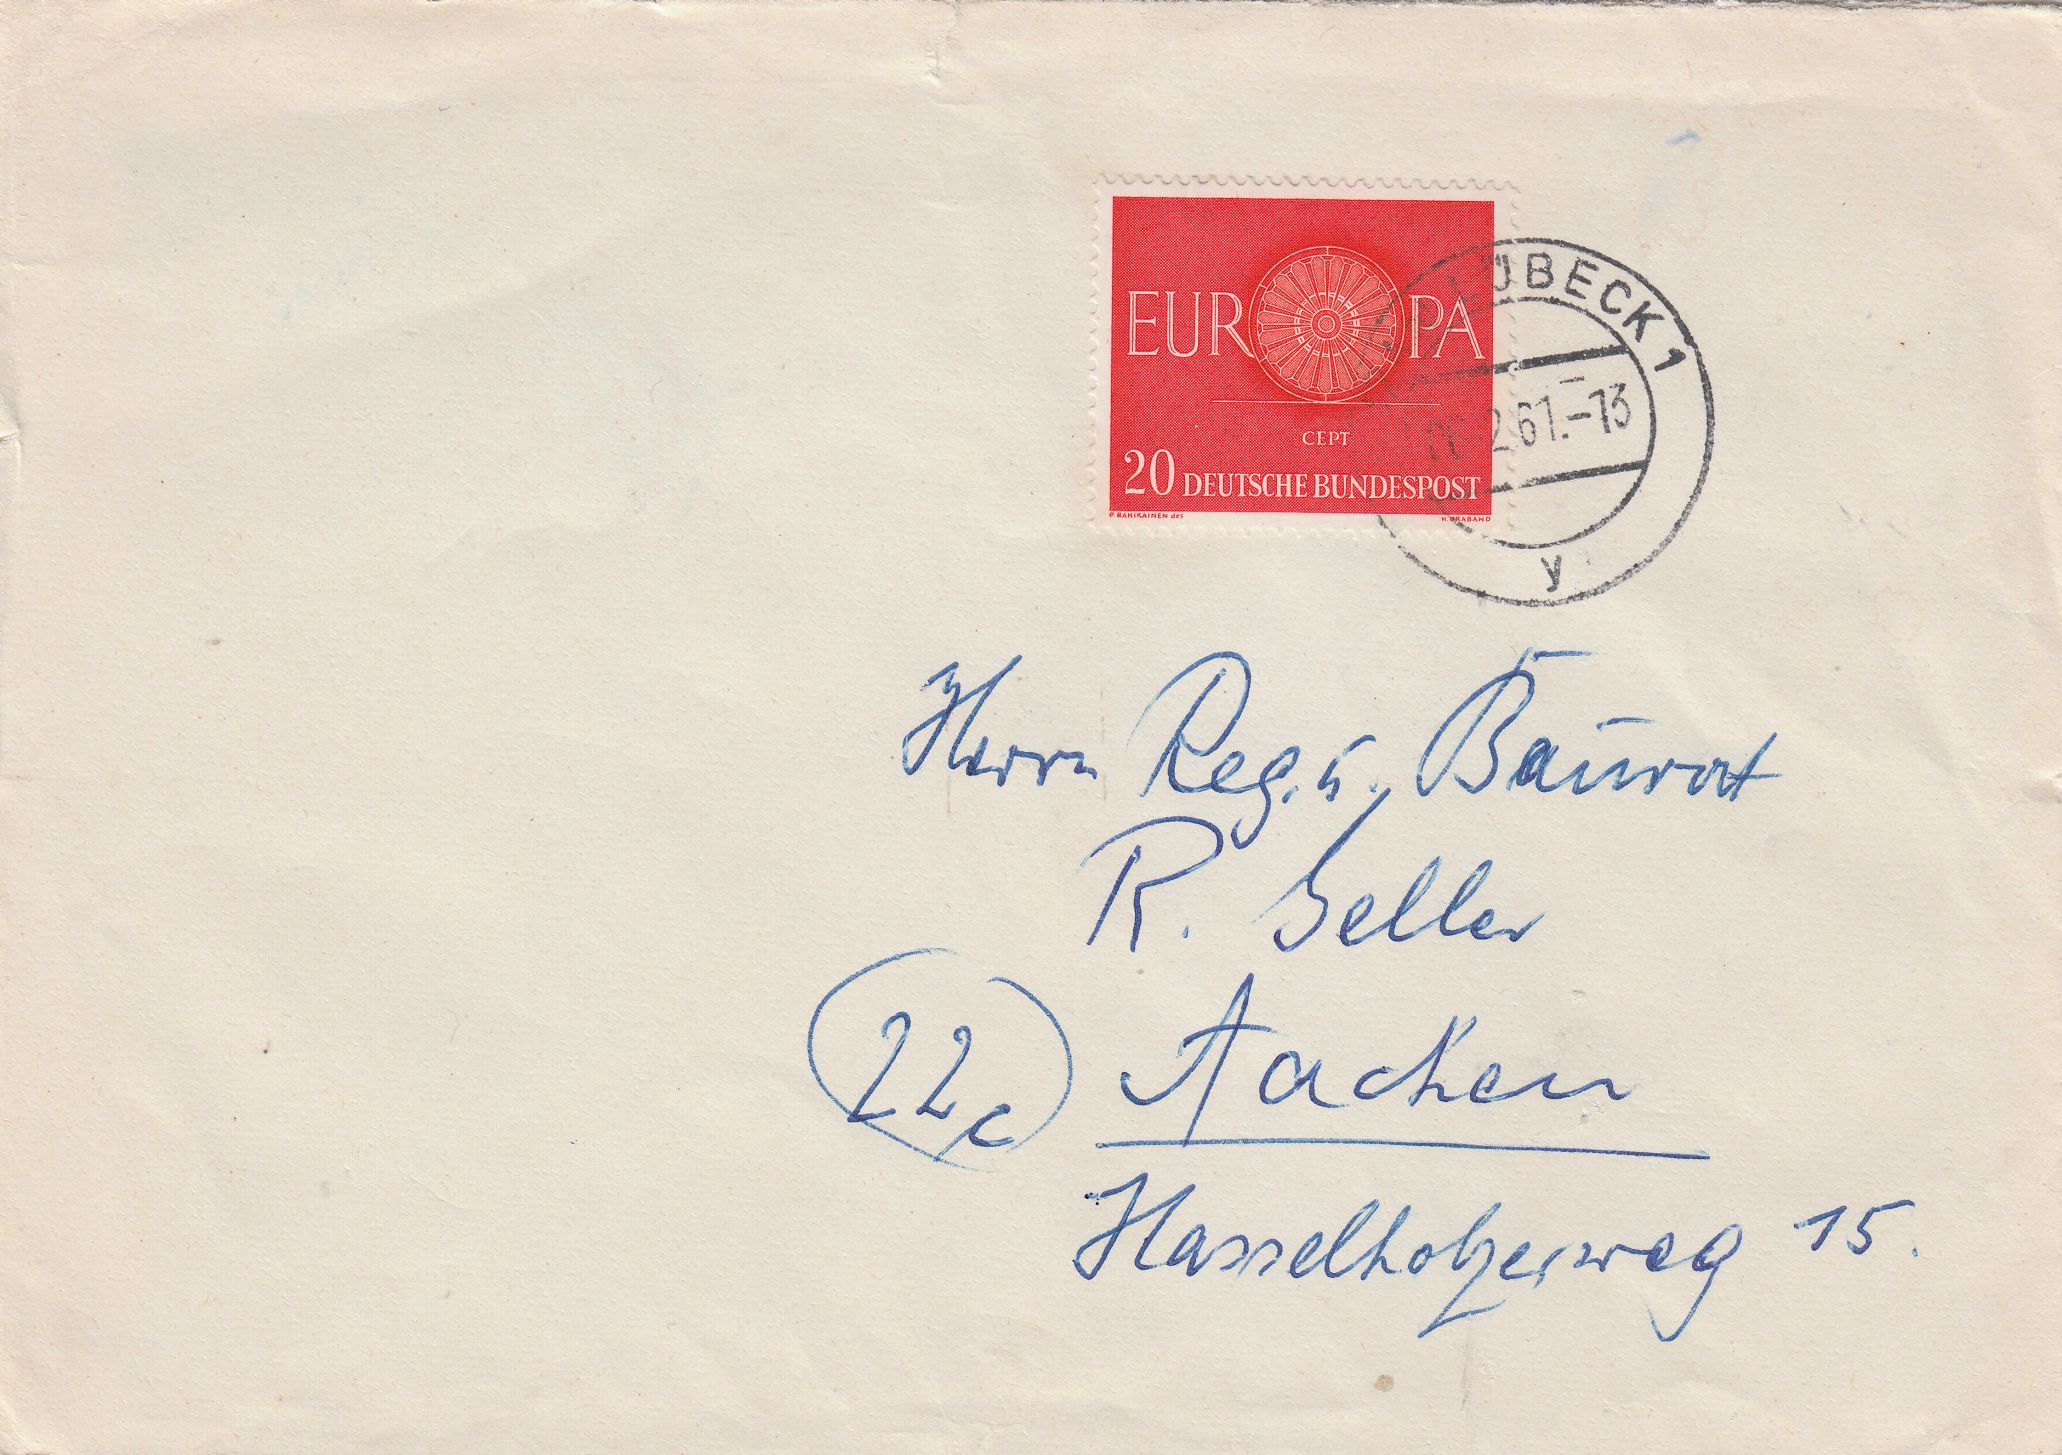 EUROPA
CEPT
20 DEUTSCHE BUNDESPOST
P. RAHIKAINEN des. H. BRABAND
LÜBECK 1
2.61.-13
y
Herrn Reg. u. Baurat
R. Geller
22c Aachen
Hasselholzerweg 15.